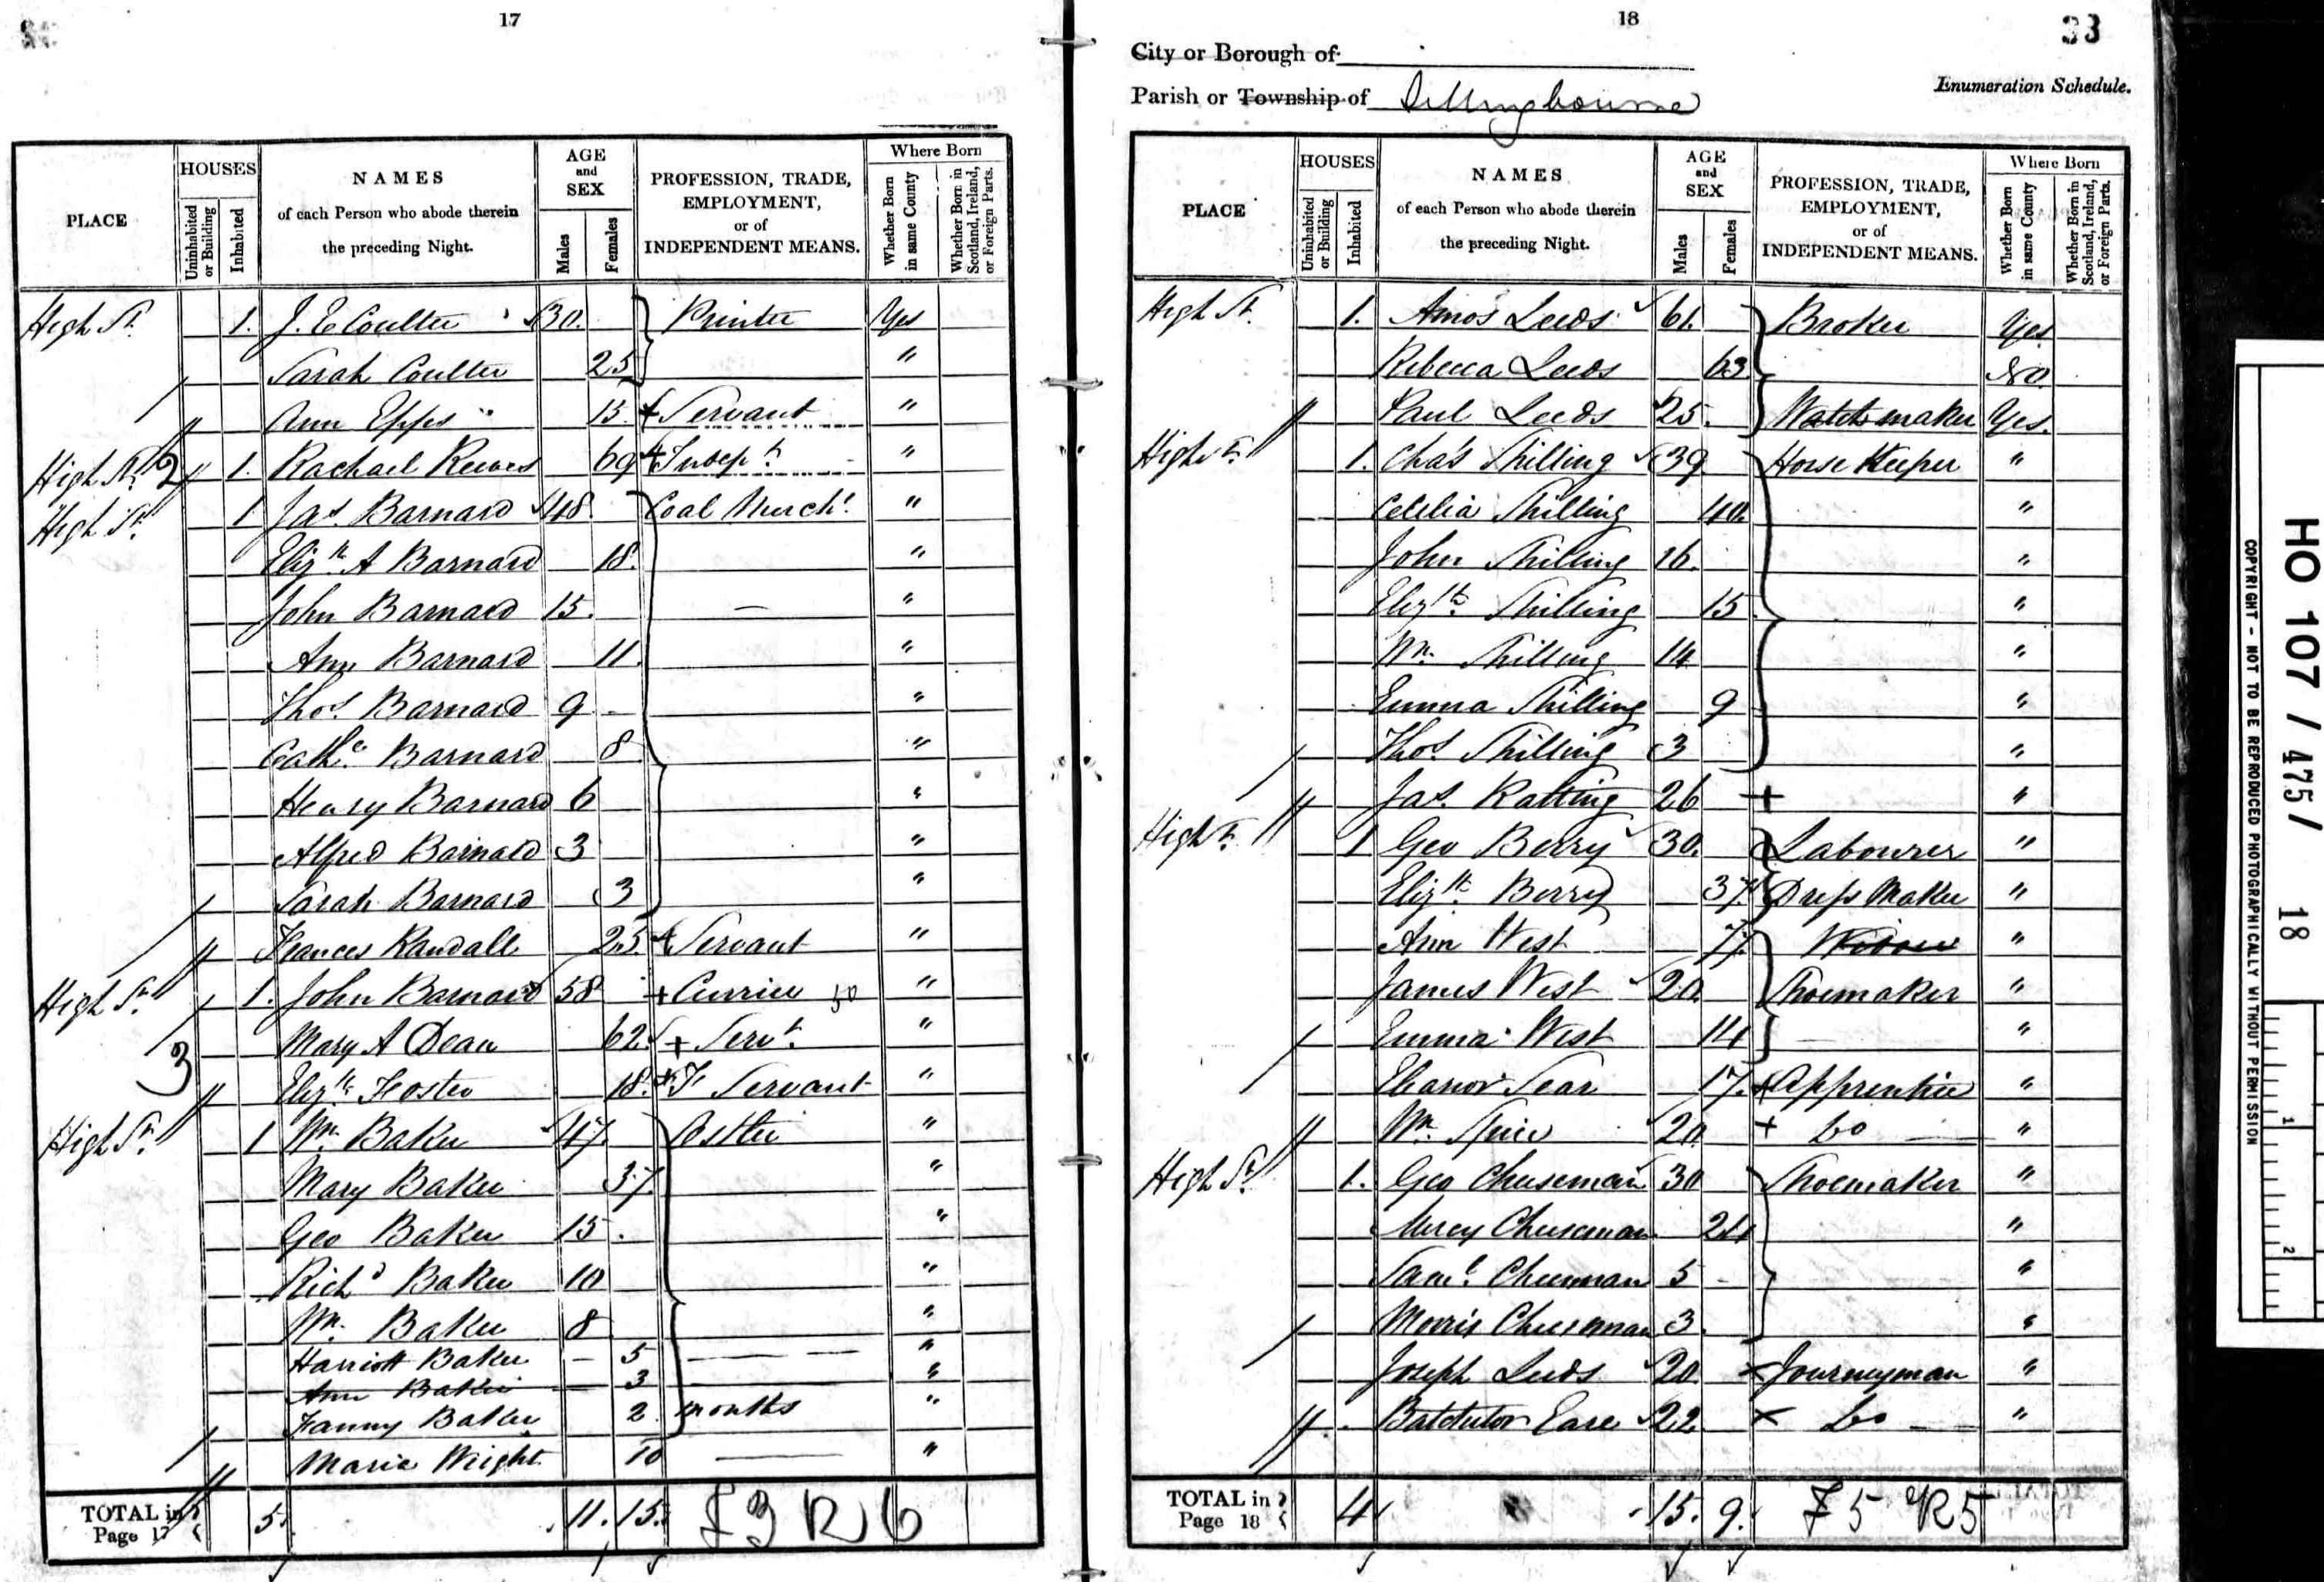 17
HOUSES
AGE and SEX
Where Born
PLACE
Uninhabited or Building
Inhabited
NAMES of each Person who abode therein the preceding Night.
Males
Females
PROFESSION, TRADE, EMPLOYMENT, or of INDEPENDENT MEANS.
Whether Born in same County
Whether Born in Scotland, Ireland, or Foreign Parts.
High St. 1. J. E Coulter 30. Printer Yes
Sarah Coulter 25 "
Ann Epps 15 + Servant "
High St. 2 1. Rachael Reeves 69 + Indept "
High St. 1 Jas. Barnard 48. Coal Mercht. "
Elizth A Barnard 18. "
John Barnard 15. — "
Ann Barnard 11. "
Thos. Barnard 9 - "
Cathe. Barnard 8 "
Henry Barnard 6 "
Alfred Barnard 3 "
Sarah Barnard 3 "
Frances Randall 25. + Servant "
High St. 1. John Barnard 58 + Currier 50 "
3 Mary A Dean 62. + Servt. "
Elizth Foster 18. + F Servant "
High St. 1 Wm. Baker 47. Ostler "
Mary Baker 37. "
Geo Baker 15. "
Richd Baker 10 "
Wm. Baker 8 "
Harriott Baker - 5 "
Ann Baker 3 "
Fanny Baker 2 months "
Maria Wright 10 — "
TOTAL in Page 17 5. 11. 15. F 3 R 6
18
33
City or Borough of
Parish or Township of Sittingbourne
Enumeration Schedule.
HOUSES
AGE and SEX
Where Born
PLACE
Uninhabited or Building
Inhabited
NAMES of each Person who abode therein the preceding Night.
Males
Females
PROFESSION, TRADE, EMPLOYMENT, or of INDEPENDENT MEANS.
Whether Born in same County
Whether Born in Scotland, Ireland, or Foreign Parts.
High St. 1. Amos Leeds 61. Broker Yes
Rebecca Leeds 63 No.
Paul Leeds 25. Watchmaker Yes.
High St. 1. Chas Shilling 39 Horse Keeper "
Celelia Shilling 40. "
John Shilling 16. "
Elizth. Shilling 15 "
Wm. Shilling 14 "
Emma Shilling 9 "
Thos. Shilling 3 "
Jas. Ratting 26 + "
High St. 1 Geo Berry 30. Labourer "
Elizth Berry 37. Dress Maker "
Ann West 77. Widow "
James West 20. Shoemaker "
Emma West 14 "
Eleanor Sear 17. + Apprentice "
Wm. Spice 20 + Do — "
High St. 1. Geo Cheeseman 30 Shoemaker "
Mercy Cheeseman 24 "
Saml. Cheesman 5 - "
Morris Cheesman 3. "
Joseph Leeds 20. × Journeyman "
22 × Do — "
TOTAL in Page 18 4. 15. 9. F 5 R 5
HO 107 / 475 / 18
COPYRIGHT - NOT TO BE REPRODUCED PHOTOGRAPHICALLY WITHOUT PERMISSION
1
2